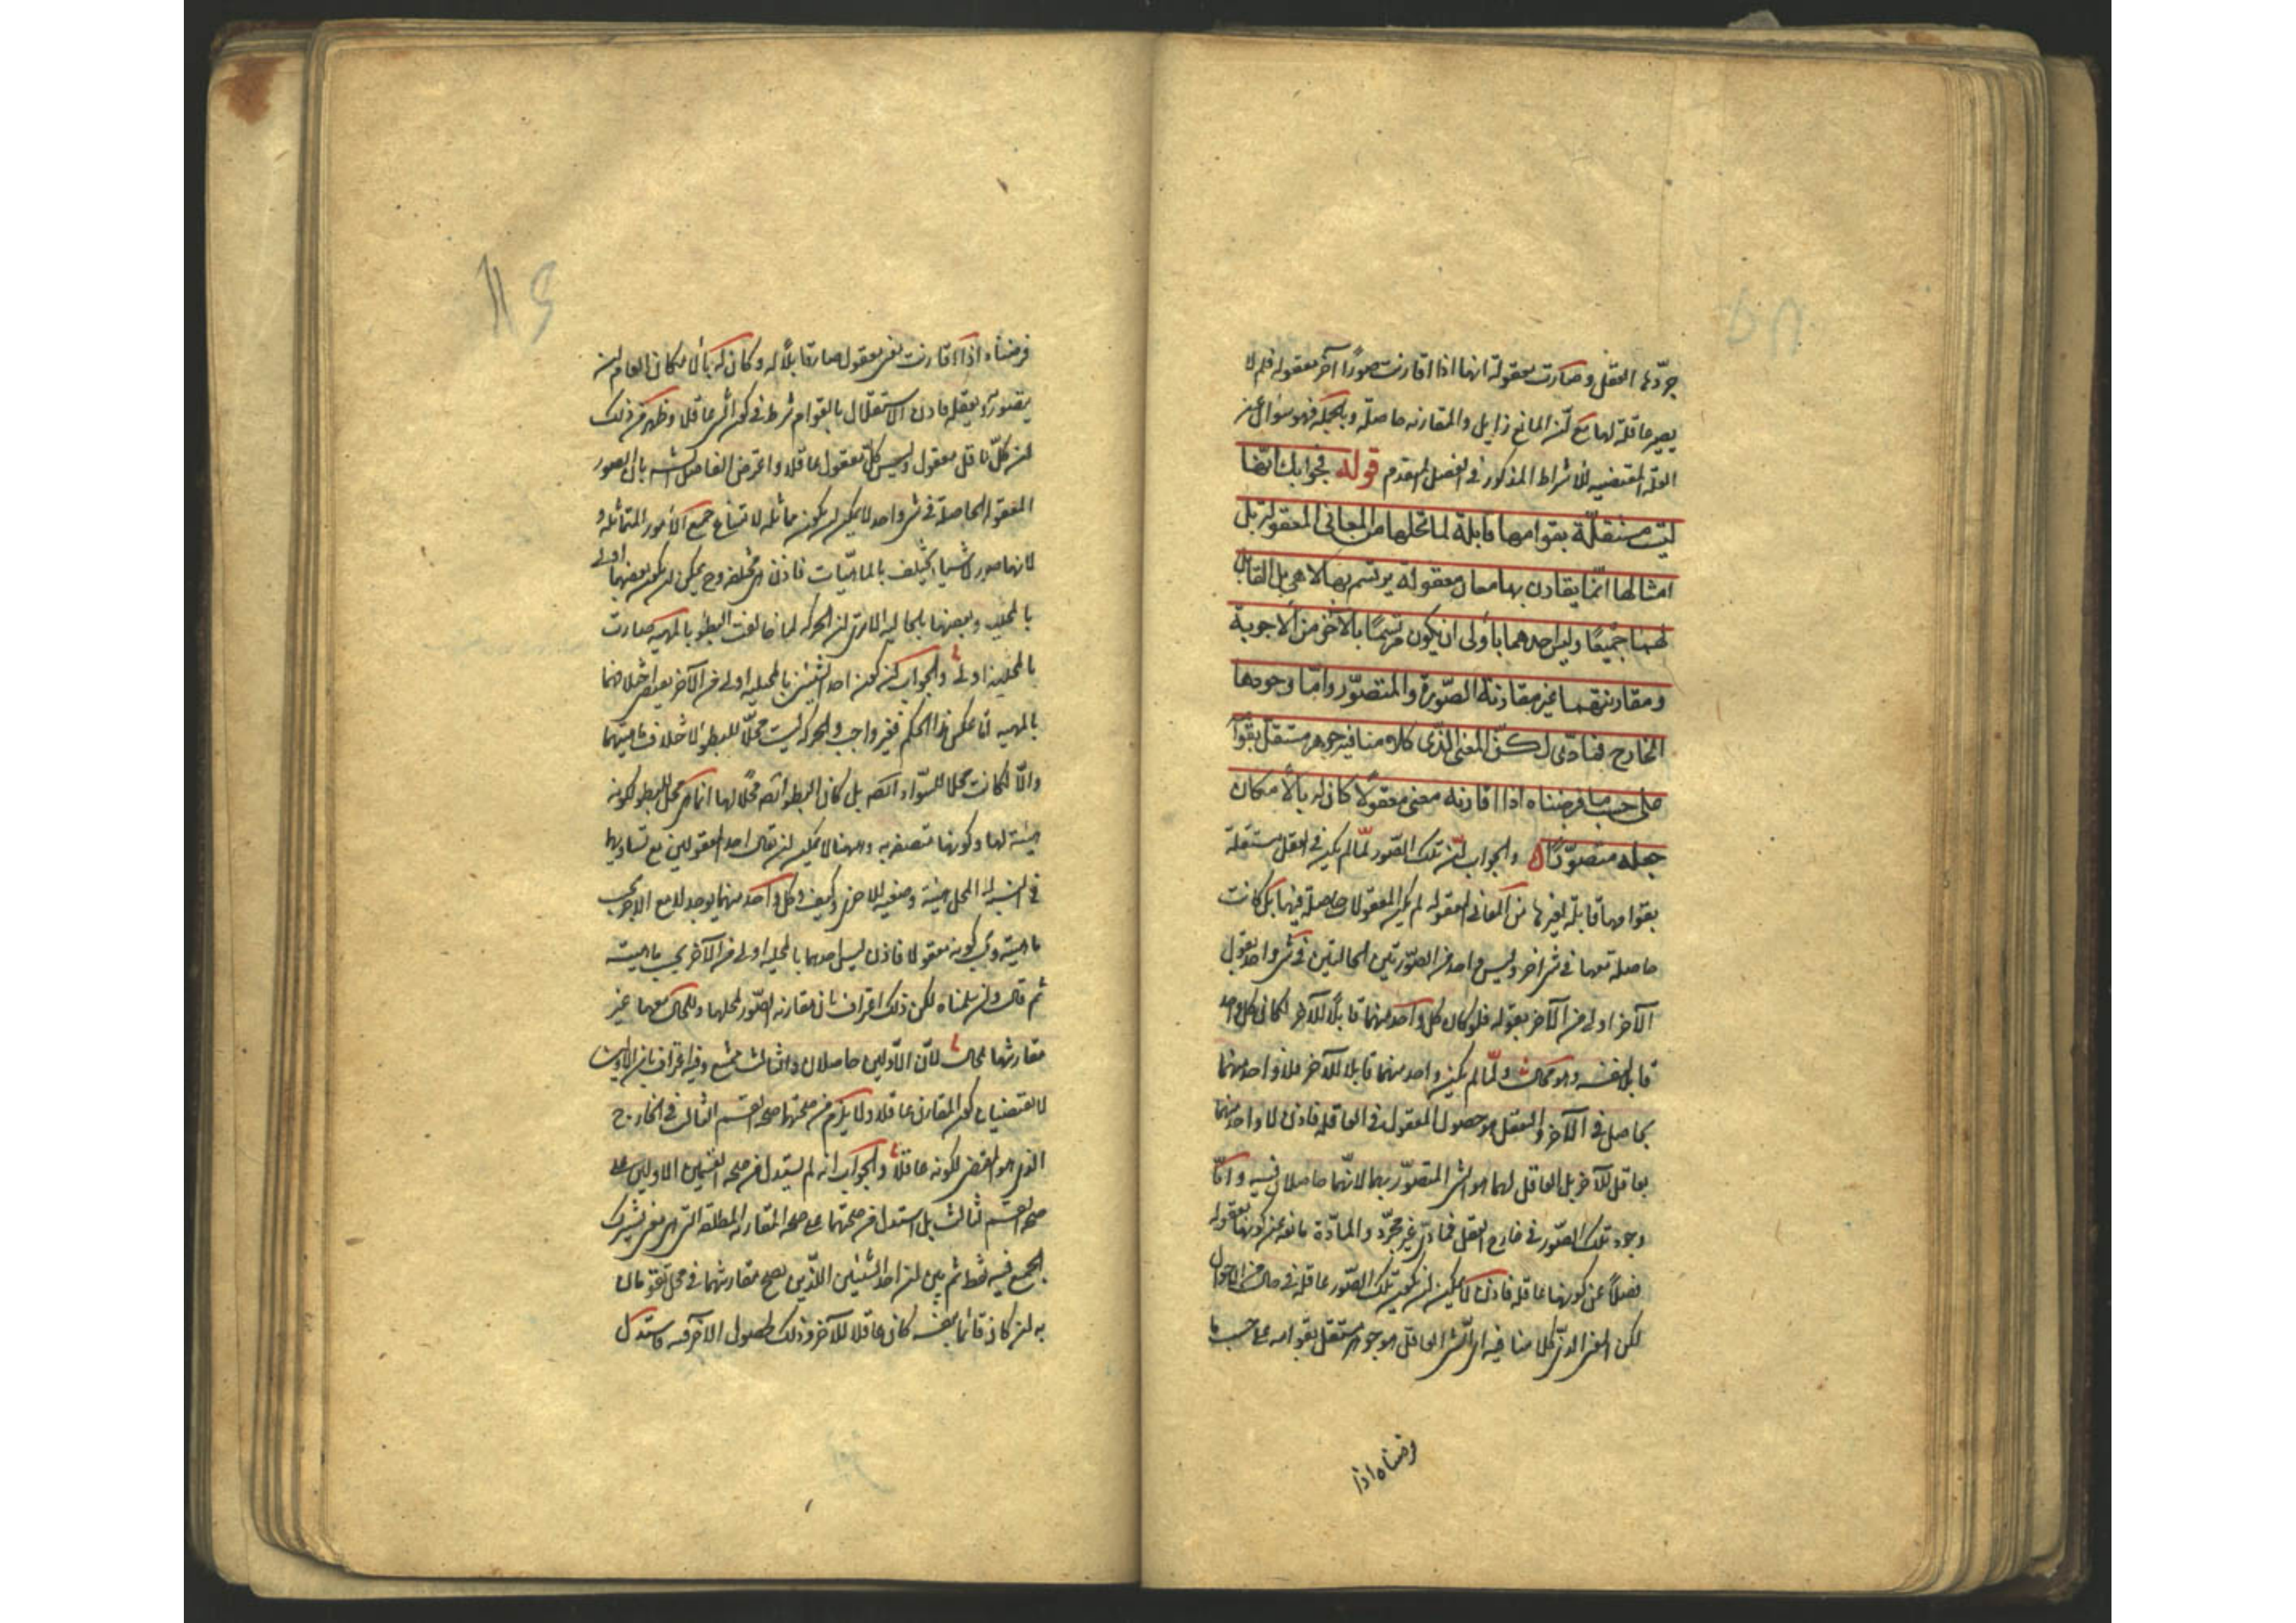 جرّدها العقل وصارت معقولة انها اذا قارنت صورًا آخر معقوله فلم لا
يصير عاقلة لها مع لنّ المانع زايل والمقارنه حاصلة وبالجمله فهو سؤال عن
العلّة المقتضيه للاشراط المذكور فى الفصل المقدم قوله فجوابك انها
ليست مستقلّة بقوامها قابلة لما تحلها من المعانى المعقولة بل
امثالها انّما يقارن بها معان معقوله يرتسم بها لا هى بل القابل
لهما جميعًا وليس احدهما بأولى ان يكون مرتسمًا بالآخر من الاجوبة
ومقارنتهما غير مقارنة الصّورة والمتصوّر وامّا وجودها
الخارج فمادّى لكنّ المعنى الذى كلامنا فيه جوهر مستقل بقوا
على حسب ما فرضناه اذا قارنه معنى معقولًا كان له بالامكان
جعله متصوّرًا والجواب لنّ تلك الصّور لمّا لم يكن فى العقل مستقلة
بقوامها قابلة لغيرها من المعانى المعقوله لم يكن المعقولات حاصلة فيها بل كانت
حاصلة معها فى شى اخر وليس واحد من الصّورتين الحالتين فى شى واحد بقبول
الآخر اولى من الآخر بقوله فلو كان كل واحد منهما قابلًا للآخر لكان كل واحد
قابلا لنفسه وهو محال ولمّا لم يكن واحد منهما قابلا للآخر فلا واحد منهما
بحاصل فى الآخر والتعقل هو حصول المعقول فى العاقلة فاذن لا واحد منهما
بعاقل للآخر بل العاقل لهما هو الشى المتصوّر بهما لانّهما حاصلان فيه وامّا
وجود تلك الصّور فى خارج العقل فمادّى غير مجرّد والمادّة مانعه عن كونها معقوله
فضلًا عن كونها عاقلة فاذن لا يمكن لن يكون تلك الصّور عاقلة فى حال من الاحوال
لكن المعنى الذى كلامنا فيه اى الشى العاقل هو جوهر مستقل بقوامه على حسب ما
فرضناه اذا
فرضناه اذا قارنت معنى معقول صار قابلًا له وكان له بالامكان العام لن
يتصوّره ويعقله فاذن الاستقلال بالقوام شرط فى كون الشى عاقلا وظهر من ذلك
لن كلّ عاقل معقول وليس كلّ معقول عاقلا واعترض الفاضل الشارح بان الصور
المعقوله الحاصلة فى شى واحد لا يمكن لن يكون متماثلة لامتناع جميع الامور المتماثله و
لانها صور لاشياء تختلف بالماهيّات فاذن هى مختلفه وح يمكن لن يكون بعضها اولى
بالمحلية وبعضها بالحالية الا ترى لن الحركه لما خالفت البطؤ بالمهيه صارت
بالمحلية اولى والجواب لن كون احد الشيئين بالمحلية اولى من الآخر يقتضى اختلافهما
بالمهيه امّا عكس هذا الحكم فغير واجب والحركه ليست محلّا للبطؤ لاختلاف ماهيتهما
والّا لكانت محلا للسّواد ايضا بل كان البطؤ ايضا محلًا لها انما هى محل للبطؤ لكونه
هيئة لها وكونها متصفه به وههنا لا يمكن لن يقال احد المعقولين مع تساويهما
فى النسبة الى المحل هيئة وصفة للآخر وكيف وكل واحد منهما يوجد لا مع الآخر بحسب
ماهيته وبحسب كونه معقولا فاذن ليس احدهما بالمحلية اولى من الآخر بحسب ماهيته
ثم قال ولن سلمناه لكن ذلك اعتراف بان مقارنه الصّور لمحلها وللحال معها غير
مقارنتها لحالّ لانّ الاوّلين حاصلان والثالث ممتنع وفيه اعتراف بان الاوّلين
لا يقتضيان كون المقارن عاقلا ولا يلزم من صحتها صحه القسم الثالث فى الخارج
الذى هو المقتضى لكونه عاقلًا والجواب انه لم يستدل من صحه القسمين الاولين على
صحه القسم الثالث بل استدل من صحتهما على صحه المقارنه المطلقه التى هى معنى يشترك
الجميع فيه فقط ثم بين لن احد الشيئين اللّذين يصح مقارنتهما فى محل تقومان
به لن كان قائما بنفسه كان عاقلا للآخر وذلك لحصول الآخر فيه فاستدل